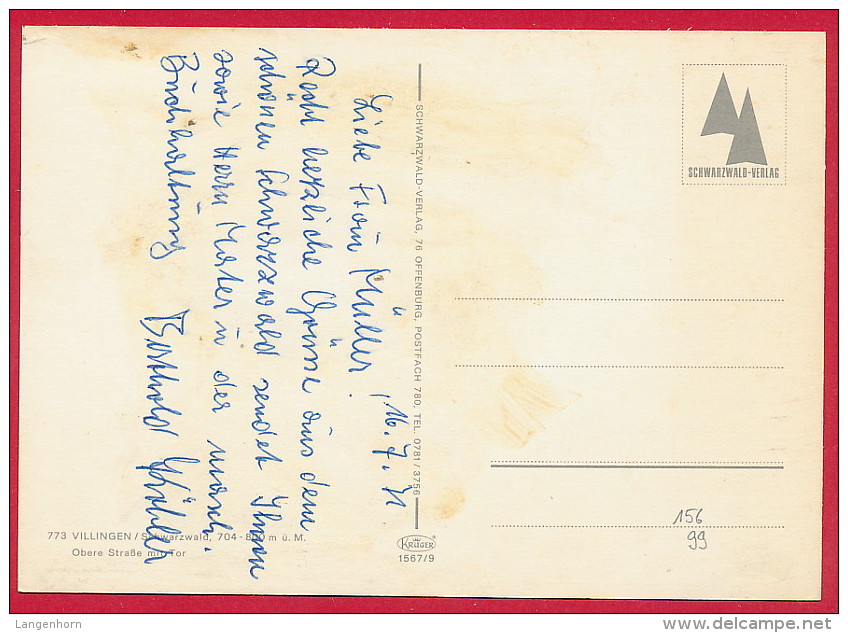 16. 7. 71
Liebe Frau Müller,
Recht herzliche Grüsse aus dem
schönen Schwarzwald sendet Ihnen
sowie Herrn u der masch.
Buchhaltung Berthold
SCHWARZWALD-VERLAG, 76 OFFENBURG, POSTFACH 780, TEL. 0781/3756
SCHWARZWALD-VERLAG
773 VILLINGEN / Schwarzwald, 704-800 m ü. M.
Obere Straße mit Tor
KRÜGER
1567/9
156
99
Langenhorn
www.delcampe.net